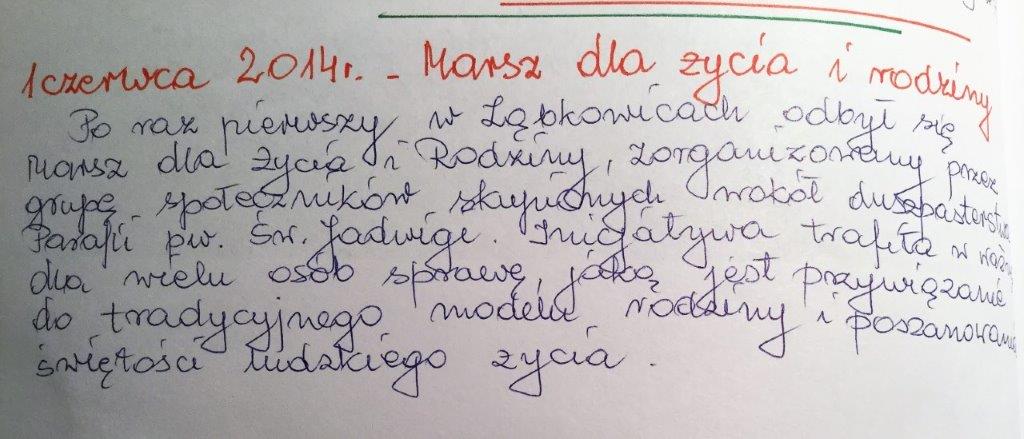 1 czerwca 2014r. - Marsz dla życia i rodziny
Po raz pierwszy w Ząbkowicach odbył się
Marsz dla Życia i Rodziny, zorganizowany przez
grupę społeczników skupionych wokół duszpasterstwa
Parafii pw. Św. Jadwigi. Inicjatywa trafiła w ważną
dla wielu osób sprawę, jaką jest przywiązanie
do tradycyjnego modelu rodziny i poszanowanie
świętości ludzkiego życia.